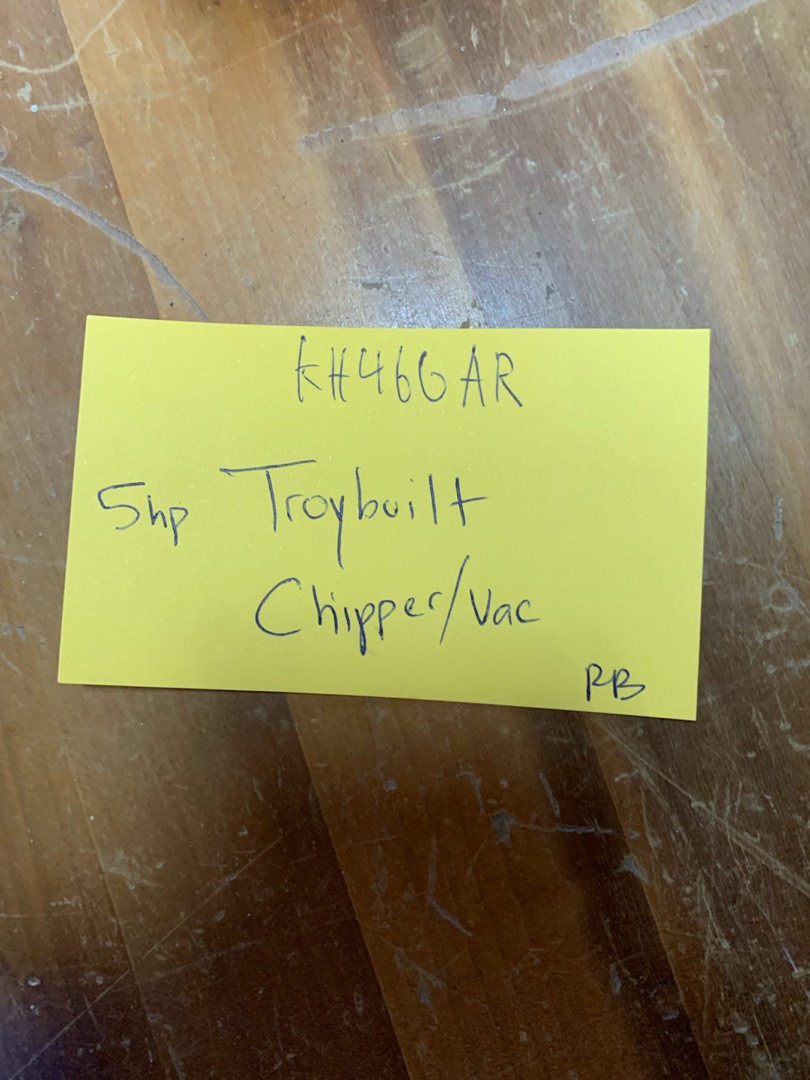 KH466AR
5hp Troybuilt
Chipper/Vac
RB